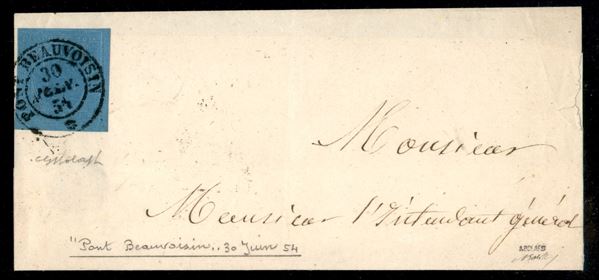 PONT BEAUVOISIN
30
54
Monsieur
Monsieur l'Intendant général
"Pont Beauvoisin.. 30 Juin 54